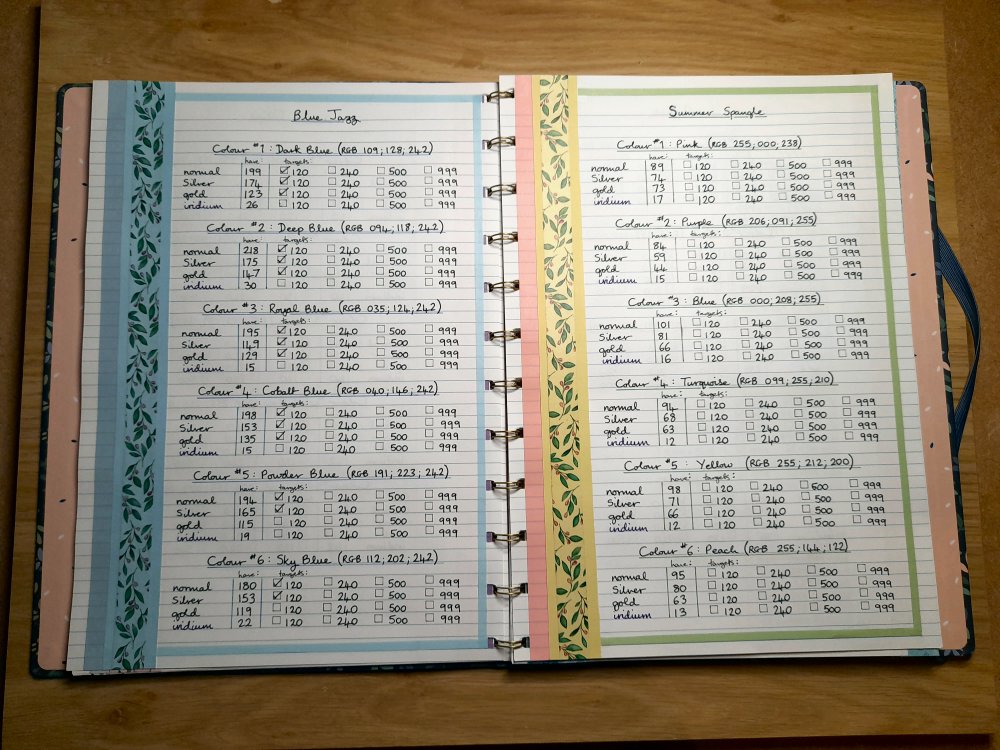 Blue Jazz
Colour #1: Dark Blue (RGB 109; 128; 242)
have: targets:
normal 199 ☑ 120 ☐ 240 ☐ 500 ☐ 999
Silver 174 ☑ 120 ☐ 240 ☐ 500 ☐ 999
gold 123 ☑ 120 ☐ 240 ☐ 500 ☐ 999
iridium 26 ☐ 120 ☐ 240 ☐ 500 ☐ 999
Colour #2: Deep Blue (RGB 094; 118; 242)
have: targets:
normal 218 ☑ 120 ☐ 240 ☐ 500 ☐ 999
Silver 175 ☑ 120 ☐ 240 ☐ 500 ☐ 999
gold 147 ☑ 120 ☐ 240 ☐ 500 ☐ 999
iridium 30 ☐ 120 ☐ 240 ☐ 500 ☐ 999
Colour #3: Royal Blue (RGB 035; 124; 242)
have: targets:
normal 195 ☑ 120 ☐ 240 ☐ 500 ☐ 999
Silver 149 ☑ 120 ☐ 240 ☐ 500 ☐ 999
gold 129 ☑ 120 ☐ 240 ☐ 500 ☐ 999
iridium 15 ☐ 120 ☐ 240 ☐ 500 ☐ 999
Colour #4: Cobalt Blue (RGB 040; 146; 242)
have: targets:
normal 198 ☑ 120 ☐ 240 ☐ 500 ☐ 999
Silver 153 ☑ 120 ☐ 240 ☐ 500 ☐ 999
gold 135 ☑ 120 ☐ 240 ☐ 500 ☐ 999
iridium 15 ☐ 120 ☐ 240 ☐ 500 ☐ 999
Colour #5: Powder Blue (RGB 191; 223; 242)
have: targets:
normal 194 ☑ 120 ☐ 240 ☐ 500 ☐ 999
Silver 165 ☑ 120 ☐ 240 ☐ 500 ☐ 999
gold 115 ☐ 120 ☐ 240 ☐ 500 ☐ 999
iridium 19 ☐ 120 ☐ 240 ☐ 500 ☐ 999
Colour #6: Sky Blue (RGB 112; 202; 242)
have: targets:
normal 180 ☑ 120 ☐ 240 ☐ 500 ☐ 999
Silver 153 ☑ 120 ☐ 240 ☐ 500 ☐ 999
gold 119 ☐ 120 ☐ 240 ☐ 500 ☐ 999
iridium 22 ☐ 120 ☐ 240 ☐ 500 ☐ 999
Summer Spangle
Colour #1: Pink (RGB 255; 000; 238)
have: targets:
normal 89 ☐ 120 ☐ 240 ☐ 500 ☐ 999
Silver 74 ☐ 120 ☐ 240 ☐ 500 ☐ 999
gold 73 ☐ 120 ☐ 240 ☐ 500 ☐ 999
iridium 17 ☐ 120 ☐ 240 ☐ 500 ☐ 999
Colour #2: Purple (RGB 206; 091; 255)
have: targets:
normal 84 ☐ 120 ☐ 240 ☐ 500 ☐ 999
Silver 59 ☐ 120 ☐ 240 ☐ 500 ☐ 999
gold 44 ☐ 120 ☐ 240 ☐ 500 ☐ 999
iridium 15 ☐ 120 ☐ 240 ☐ 500 ☐ 999
Colour #3: Blue (RGB 000; 208; 255)
have: targets:
normal 101 ☐ 120 ☐ 240 ☐ 500 ☐ 999
Silver 81 ☐ 120 ☐ 240 ☐ 500 ☐ 999
gold 66 ☐ 120 ☐ 240 ☐ 500 ☐ 999
iridium 16 ☐ 120 ☐ 240 ☐ 500 ☐ 999
Colour #4: Turquoise (RGB 099; 255; 210)
have: targets:
normal 94 ☐ 120 ☐ 240 ☐ 500 ☐ 999
Silver 68 ☐ 120 ☐ 240 ☐ 500 ☐ 999
gold 63 ☐ 120 ☐ 240 ☐ 500 ☐ 999
iridium 12 ☐ 120 ☐ 240 ☐ 500 ☐ 999
Colour #5: Yellow (RGB 255; 212; 200)
have: targets:
normal 98 ☐ 120 ☐ 240 ☐ 500 ☐ 999
Silver 71 ☐ 120 ☐ 240 ☐ 500 ☐ 999
gold 66 ☐ 120 ☐ 240 ☐ 500 ☐ 999
iridium 12 ☐ 120 ☐ 240 ☐ 500 ☐ 999
Colour #6: Peach (RGB 255; 144; 122)
have: targets:
normal 95 ☐ 120 ☐ 240 ☐ 500 ☐ 999
Silver 80 ☐ 120 ☐ 240 ☐ 500 ☐ 999
gold 63 ☐ 120 ☐ 240 ☐ 500 ☐ 999
iridium 13 ☐ 120 ☐ 240 ☐ 500 ☐ 999